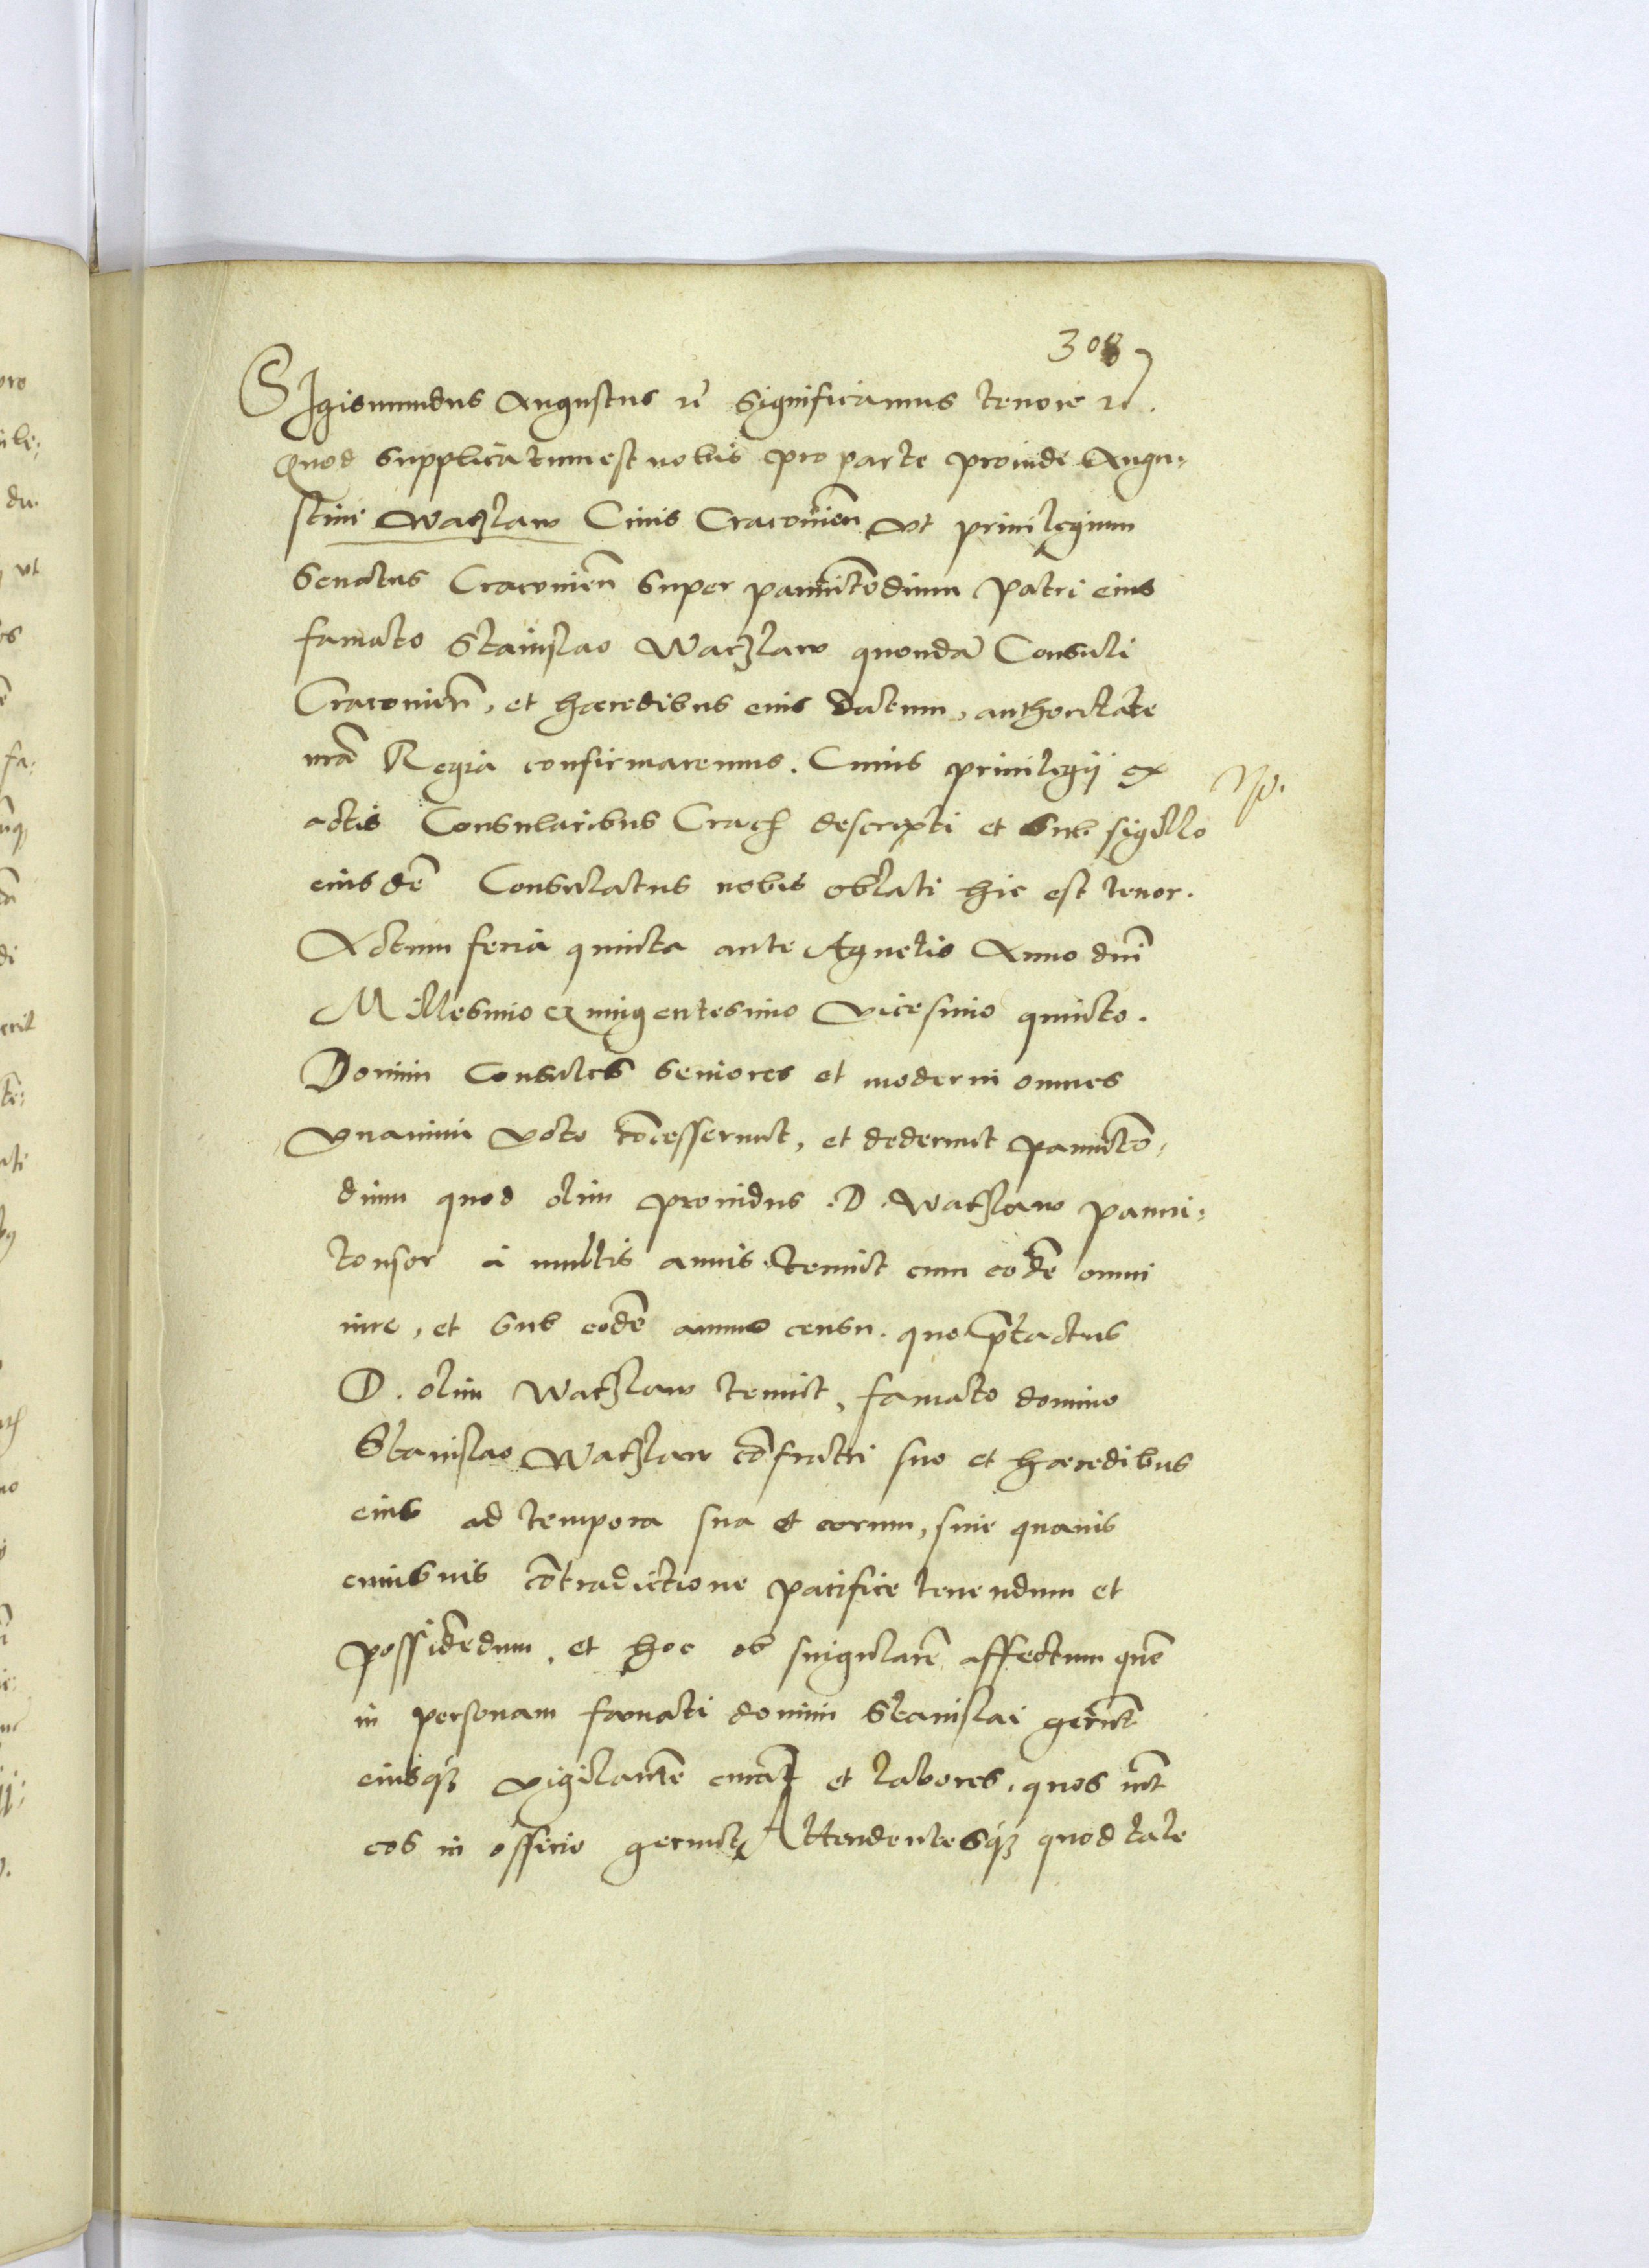 308
Sigismundus Augustus etc̄ Significamus tenore etc.
Quod Supplicatum est nobis pro parte prouidi Augu:
stini Waczlaw Ciuis Cracouien̄ vt priuilegium
Senatus Cracouien̄ Super pannitōdium Patri eius
famato Stanislao Waczlaw quondā Consuli
Cracouien̄, et hæredibus eius datum, authoritate
nr̄a Regia confirmaremus. Cuius priuilegij ex
actis Consularibus Crac̄ descripti et Sub sigillo
eiusdē Consulatus nobis oblati hic est tenor.
Actum feria quinta ante Agnetis Anno dn̄i
Millesimo quingentesimo vicesimo quinto.
Domini Consules Seniores et moderni omnes
vnanimi voto cōcesserunt, et dederunt pannitō:
dium quod olim prouidus .D. Waczlaw panni:
tonsor à multis annis tenuit cum eodē omni
iure, et Sub eodē annuo censu. quo p̄tactus
D. olim Waczlaw tenuit, famato domino
Stanislao Waczlaw cōfratri suo et hæredibus
eius ad tempora sua et eorum, sine quauis
cuiusuis cōtradictione pacifice tenendum et
possidēdum, et hoc ob singularē affectum quē
in personam famati domini Stanislai gerūt
eiusq3 vigilantē curā et labores, quos int̄
eos in officio gerunt Attendentesq3 quod tale